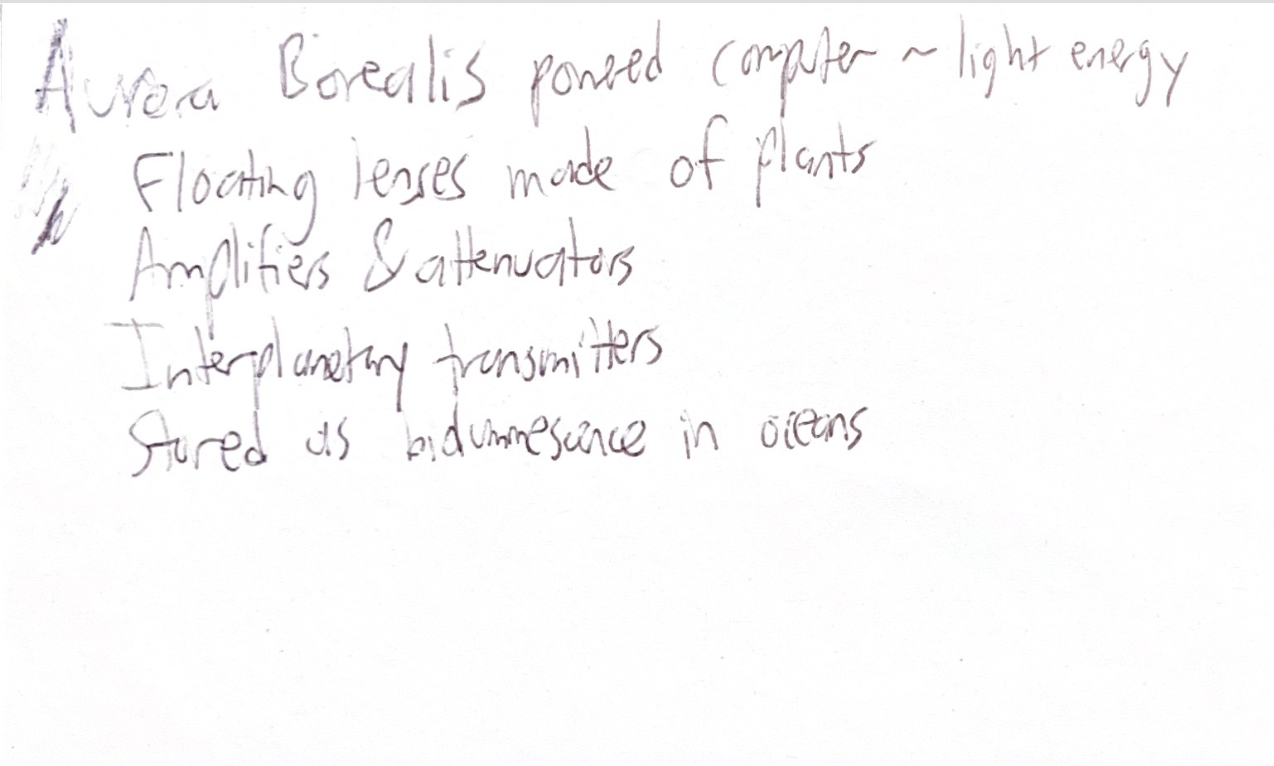 Aurora Borealis powered computer ~ light energy
Floating lenses made of plants
Amplifiers & attenuators
Interplanetary transmitters
Stored as bioluminescence in oceans